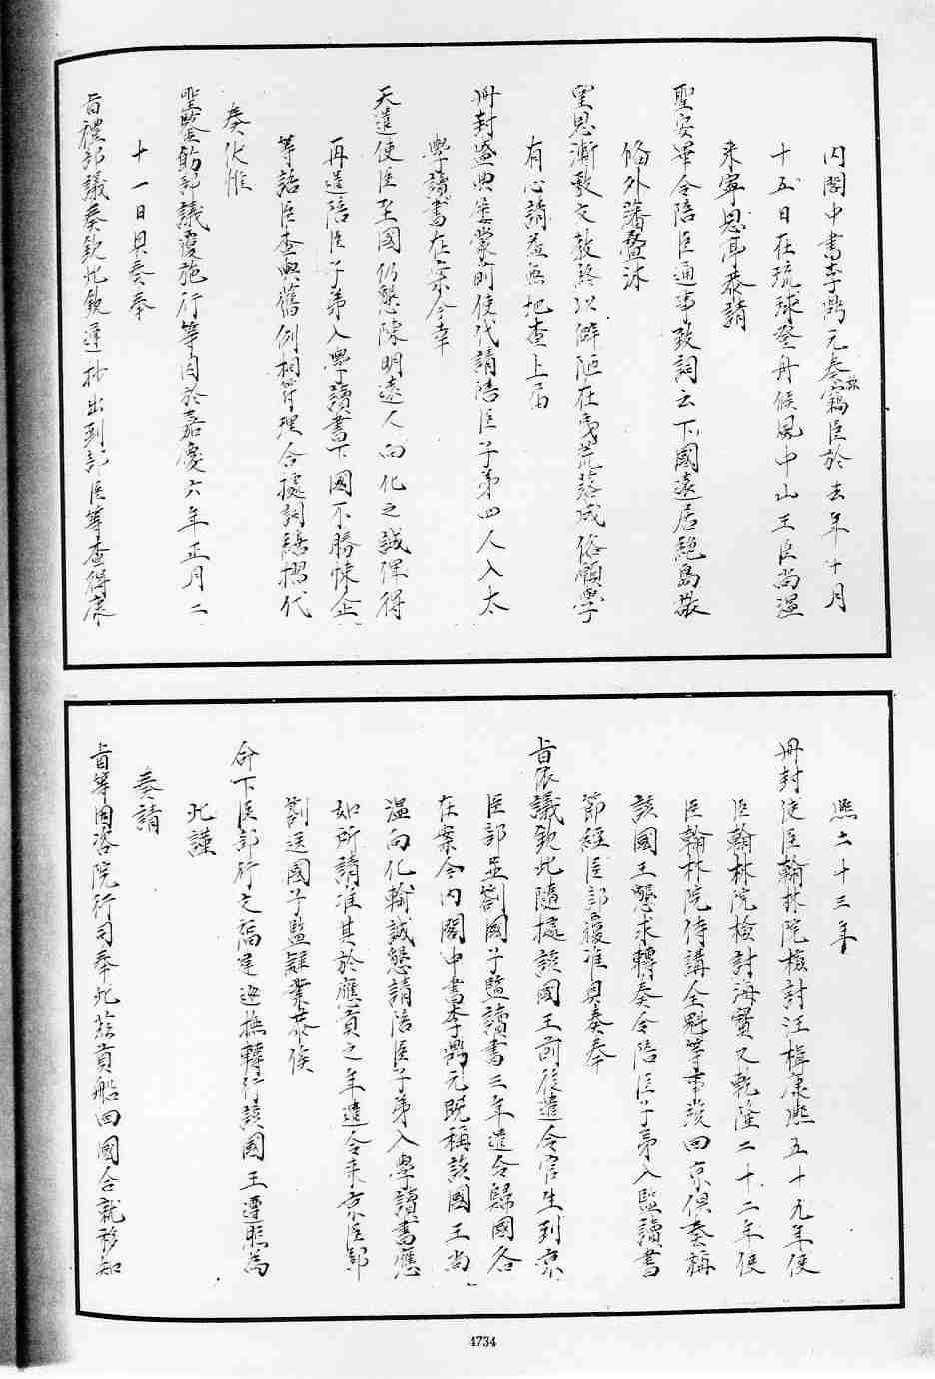 內閣中書李鼎元奏稱竊臣於去年十月
十五日在琉球登舟候風中山王臣尚溫
來寧恩耳表請
聖安畢令陪臣通事致詞云下國遠居絶島撒
備外藩疊沐
聖恩漸敷文教終以僻陋在夷荒落成俗願學
有心請益無地查上屆
冊封盛典屢蒙前使代請陪臣子弟四人入太
學讀書在案今幸
天遣使臣至國仍懇陳明遠人向化之誠俾得
再遣陪臣子弟入學讀書下國不勝悚企
等語臣查與舊例相符理合據詞繕摺代
奏伏惟
聖鑒飭部議覆施行等因於嘉慶六年正月二
十一日具奏奉
旨禮部議奏欽此欽遵抄出到部臣等查得康
熙二十三年
冊封使臣翰林院檢討汪楫康熙五十九年使
臣翰林院檢討海寶又乾隆二十二年使
臣翰林院侍講全魁等事竣回京俱奏稱
該國王懇求轉奏令陪臣子弟入監讀書
節經臣部覆准具奏奉
旨依議欽此隨據該國王前後遣令官生到京
臣部並劄國子監讀書三年遣令歸國各
在案今內閣中書李鼎元既稱該國王尚
溫向化輸誠懇請陪臣子弟入學讀書應
如所請准其於應貢之年遣令來京臣部
劄送國子監肄業恭候
命下臣部行文福建巡撫轉行該國王遵照為
此謹
奏請
旨等因咨院行司奉此茲貢船回國合就移知
4734